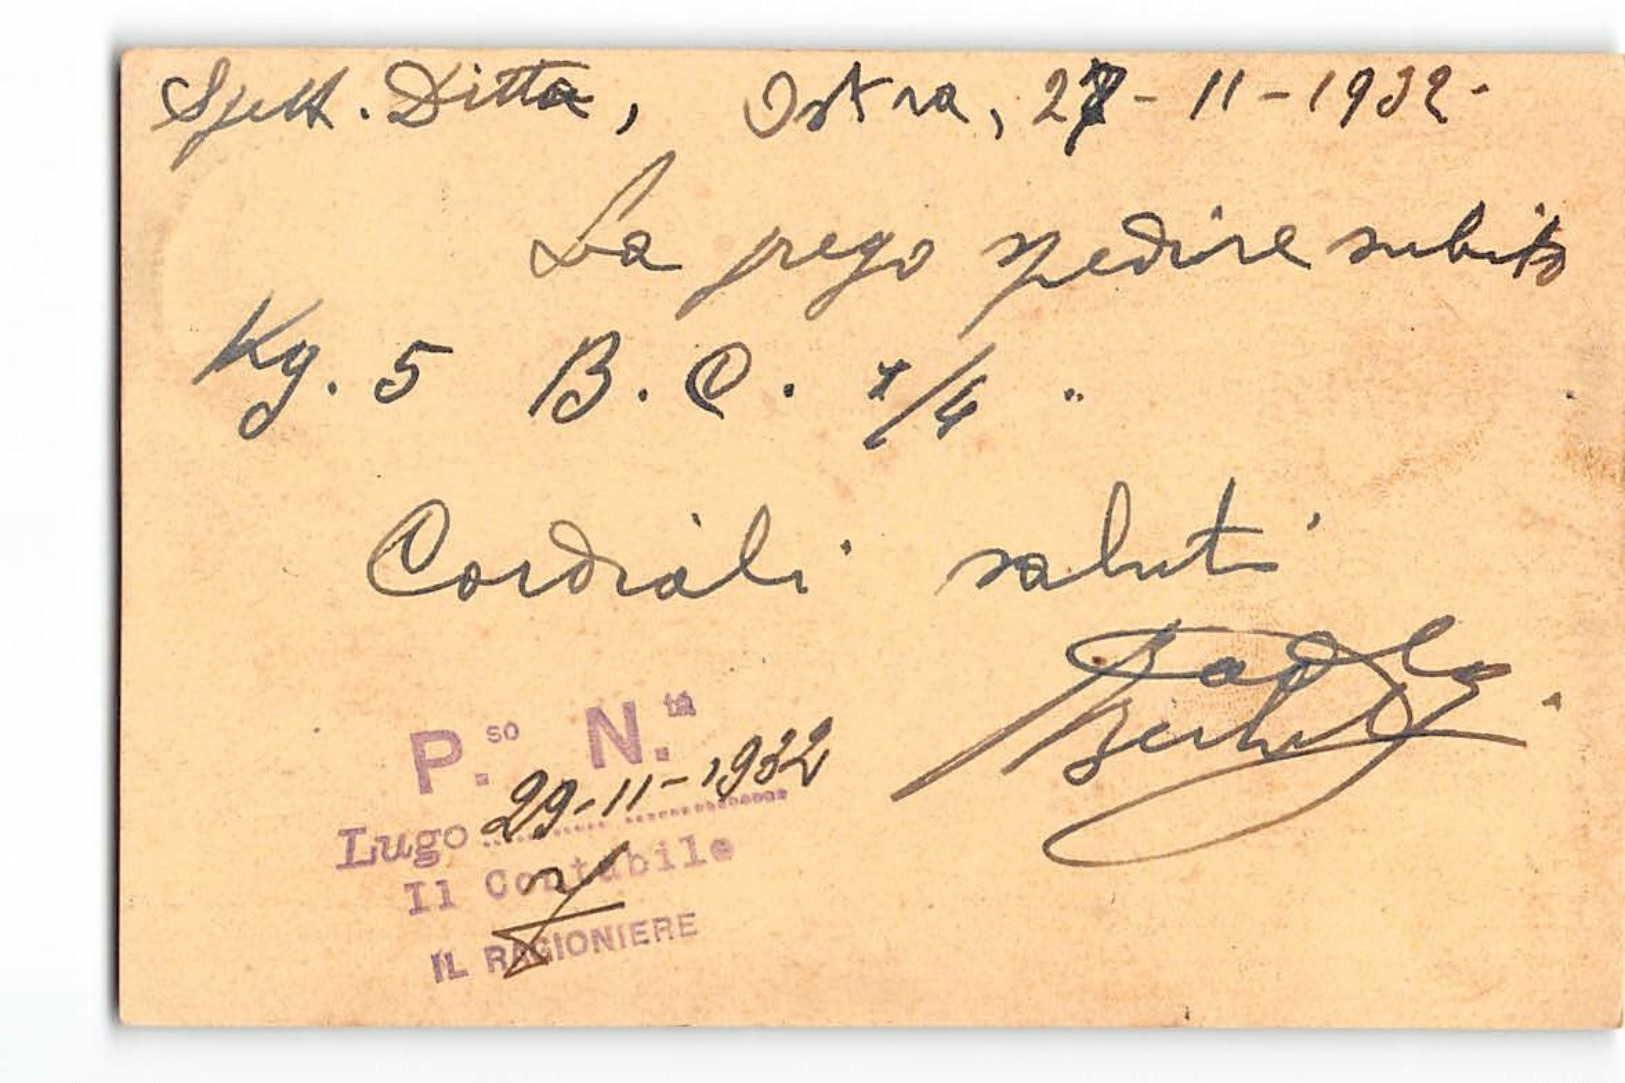 Spett. Ditta, Ostra, 27-11-1932-
La prego spedire subito
Kg. 5 B. C. 1/4 "
Cordiali saluti
P.so N.ta
Lugo 29-11-1932
Il Contabile
IL RAGIONIERE